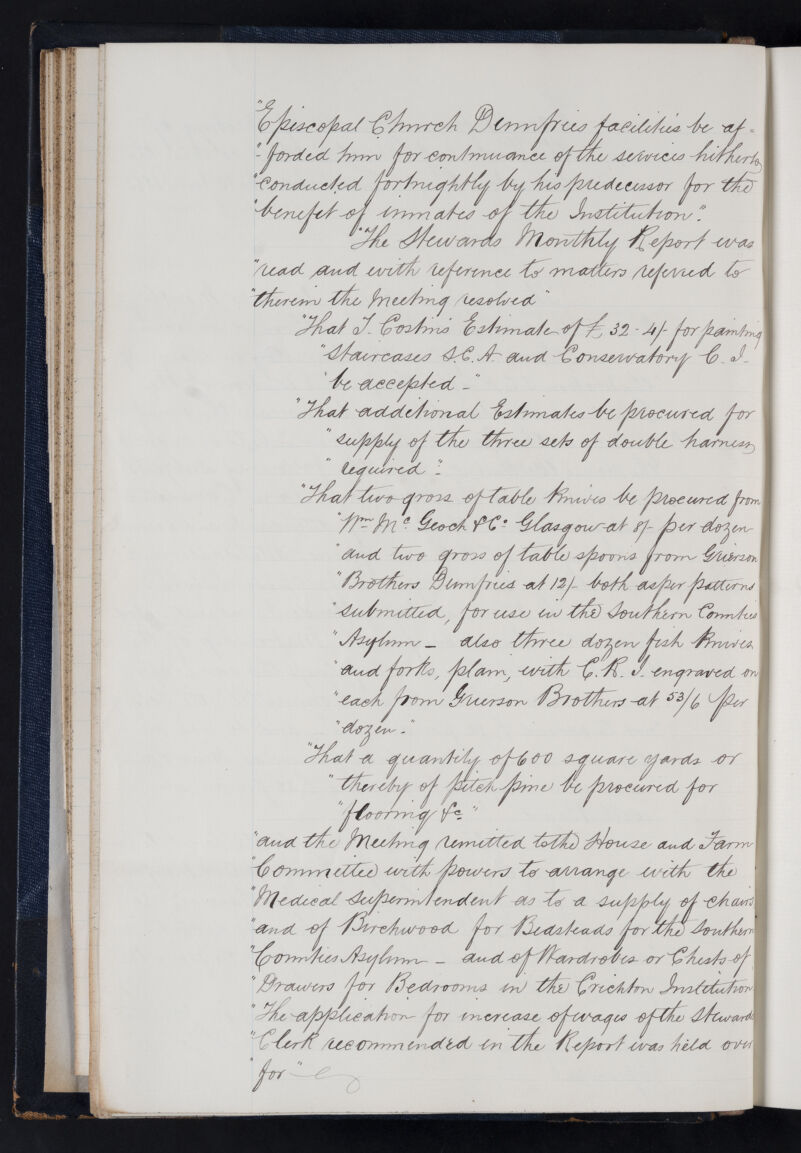 "Episcopal Church Dumfries facilities be af=
"-forded him for continuance of the services hitherto
"conducted fortnightly by his predecessor for the
"benefet of inmates of the Institution".
"The Stewards Monthly Report was
"read and with reference to matters referred to
"therein the Meeting resolved"
"That J. Costin's Estimate of £32-4/- for painting
"Staircases S.C.A. and Conservatory C. I.
"be accepted-"
"That additional Estimates be procured for
"supply of the three sets of double harness
"required".
"That two gross of table knives be procured from
"Wm. Mc. Geoch & Co. Glasgow at 8/- per dozen
"and two gross of table spoons from Grierson
"Brothers Dumfries at 12/- both as per patterns
"submitted, for use in the Southern Counties
"Asylum - also three dozen fish knives
"and forks, plain, with C. R. I. engraved on
"each from Grierson Brothers at 53/6 per
"dozen."
"That a quantity of 600 square yards or
"thereby of pitch pine be procured for
"flooring &c."
"and the Meeting remitted to the House and Farm
"Committee with powers to arrange with the
"Medical Superintendent as to a supply of chairs
"and of Birchwood for Bedsteads for the Southern
"Counties Asylum - and of Wardrobes or Chests of
"Drawers for Bedrooms in the Crichton Institution
"The application for increase of wages of the Stewards
"Clerk recommended in the Report was held over
"for"